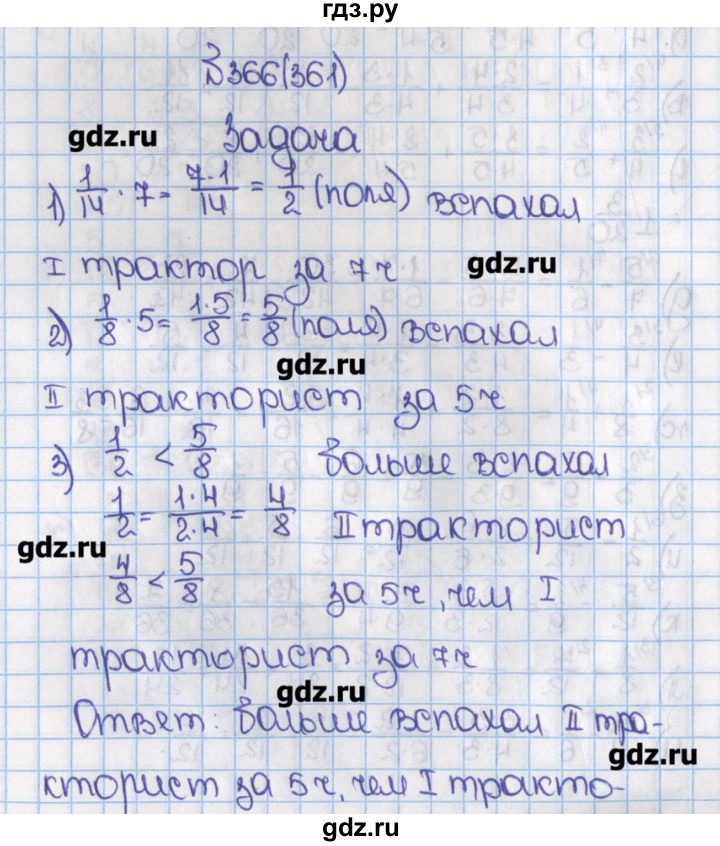 гдз.ру
№366(361)
gdz.ru
Задача
1) 1/14 · 7 = 7·1/14 = 1/2 (поля) вспахал
I трактор за 7ч
gdz.ru
2) 1/8 · 5 = 1·5/8 = 5/8 (поля) вспахал
gdz.ru
II тракторист за 5ч
3) 1/2 < 5/8 больше вспахал
1/2 = 1·4/2·4 = 4/8 II тракторист
gdz.ru
4/8 < 5/8 за 5ч, чем I
тракторист за 7ч
gdz.ru
Ответ: больше вспахал II тра-
gdz.ru
кторист за 5ч, чем I тракто-
gdz.ru